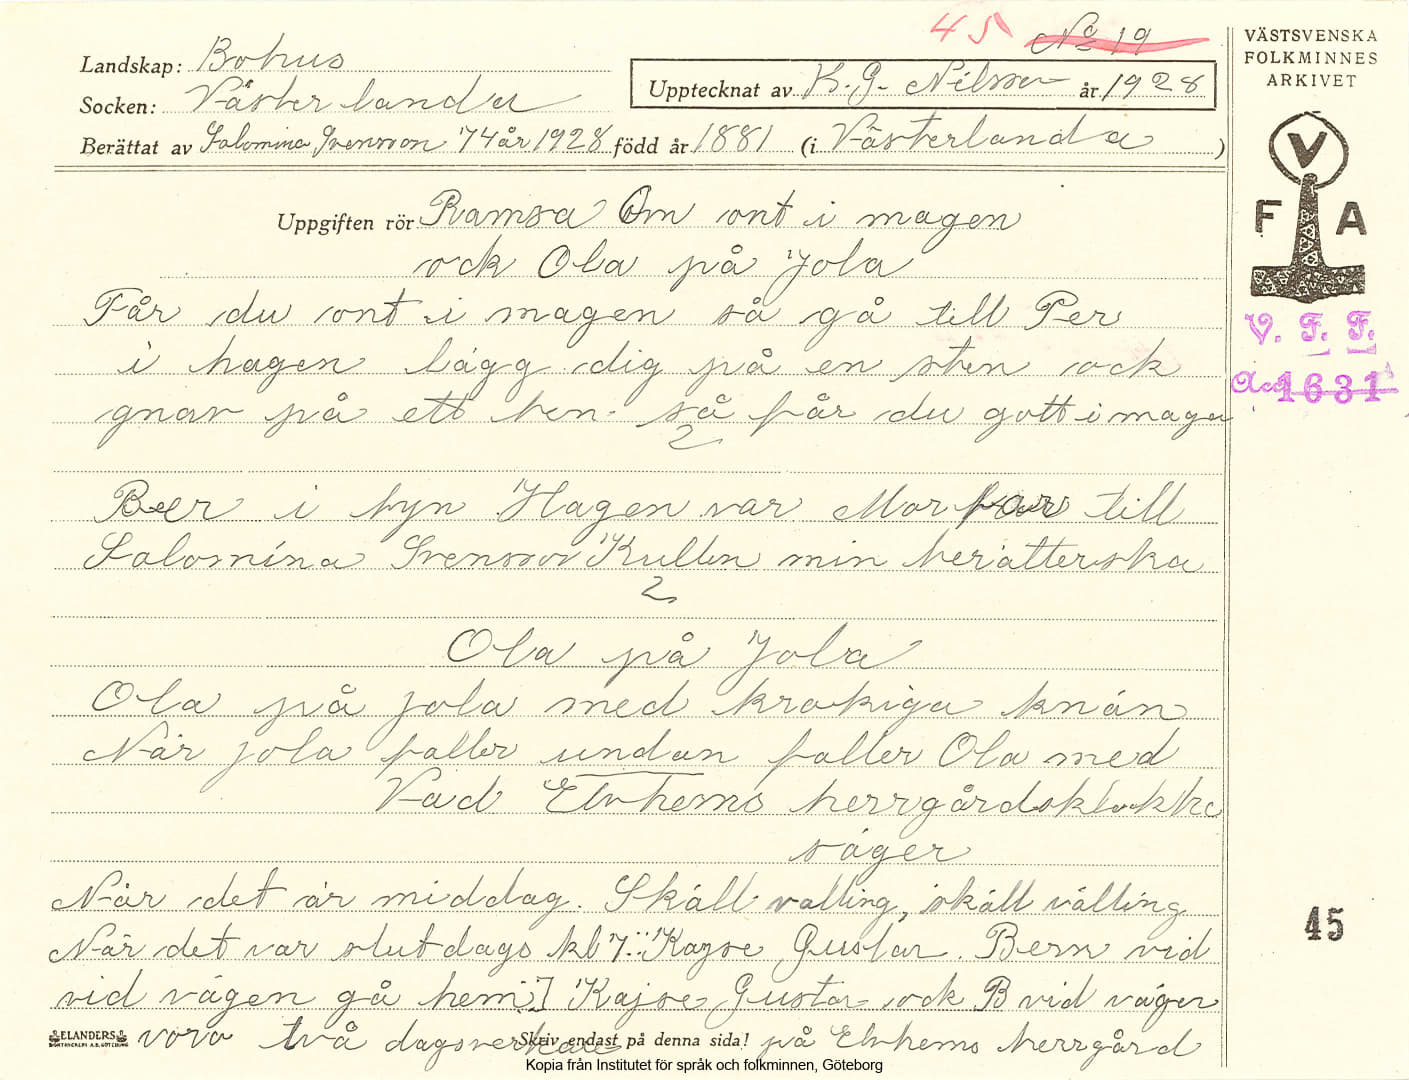 45 No 19
Landskap: Bohus
Socken: Västerlanda
Upptecknat av K. G. Nilsson år 1928
Berättat av Salomina Svensson 74 år 1928 född år 1881 (i Västerlanda)
VÄSTSVENSKA
FOLKMINNES
ARKIVET
V
F A
V. F. F.
Acc 1631
Uppgiften rör Ramsa Om ont i magen
ock Ola på Jola
Får du ont i magen så gå till Per
i hagen lägg dig på en sten ock
gnav på ett ben - så får du gott i magen
2
Per i byn Hagen var Morfar till
Salomina Svensson Kullen min berätterska
2
Ola på Jola
Ola på jola med krokiga knän
När jola faller undan faller Ola med
Vad Elvhems herrgårdsklocka
säger
När det är middag. Skäll välling, skäll välling
När det var slutdags kl 7. Kajse Gustav. Bern vid
vid vägen gå hem] Kajse Gustav ock B vid vägen
voro två dagsverkare på Elvhems herrgård
45
ELANDERS
BOKTRYCKERI A.B. GÖTEBORG
Skriv endast på denna sida!
Kopia från Institutet för språk och folkminnen, Göteborg